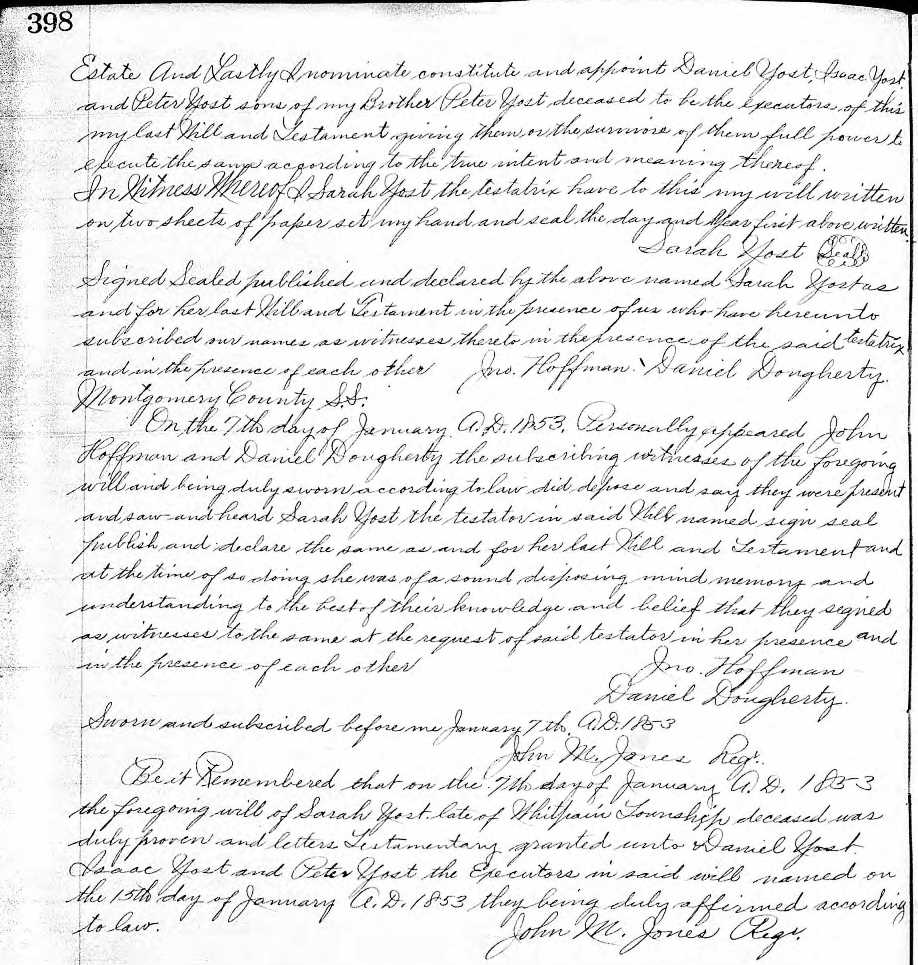 398
Estate And Lastly I nominate constitute and appoint Daniel Yost, Isaac Yost
and Peter Yost sons of my Brother Peter Yost deceased to be the executors of this
my last Will and Testament giving them or the survivors of them full power to
execute the same according to the true intent and meaning thereof.
In Witness Whereof I Sarah Yost the testatrix have to this my will written
on two sheets of paper set my hand and seal the day and Year first above written.
Sarah Yost Seal
Signed Sealed published and declared by the above named Sarah Yost as
and for her last Will and Testament in the presence of us who have hereunto
subscribed our names as witnesses thereto in the presence of the said testatrix
and in the presence of each other Jno. Hoffman. Daniel Dougherty.
Montgomery County S.S.
On the 7th day of January A.D. 1853. Personally appeared John
Hoffman and Daniel Dougherty the subscribing witnesses of the foregoing
will and being duly sworn according to law did depose and say they were present
and saw and heard Sarah Yost the testator in said Will named sign seal
publish and declare the same as and for her last Will and Testament and
at the time of so doing she was of a sound disposing mind memory and
understanding to the best of their knowledge and belief that they signed
as witnesses to the same at the request of said testator in her presence and
in the presence of each other Jno. Hoffman
Daniel Dougherty.
Sworn and subscribed before me January 7th A.D. 1853
John M. Jones Regr.
Be it Remembered that on the 7th day of January A.D. 1853
the foregoing will of Sarah Yost late of Whitpain Township deceased was
duly proven and letters Testamentary granted unto Daniel Yost
Isaac Yost and Peter Yost the Executors in said will named on
the 15th day of January A.D. 1853 they being duly affirmed according
to law. John M. Jones Regr.